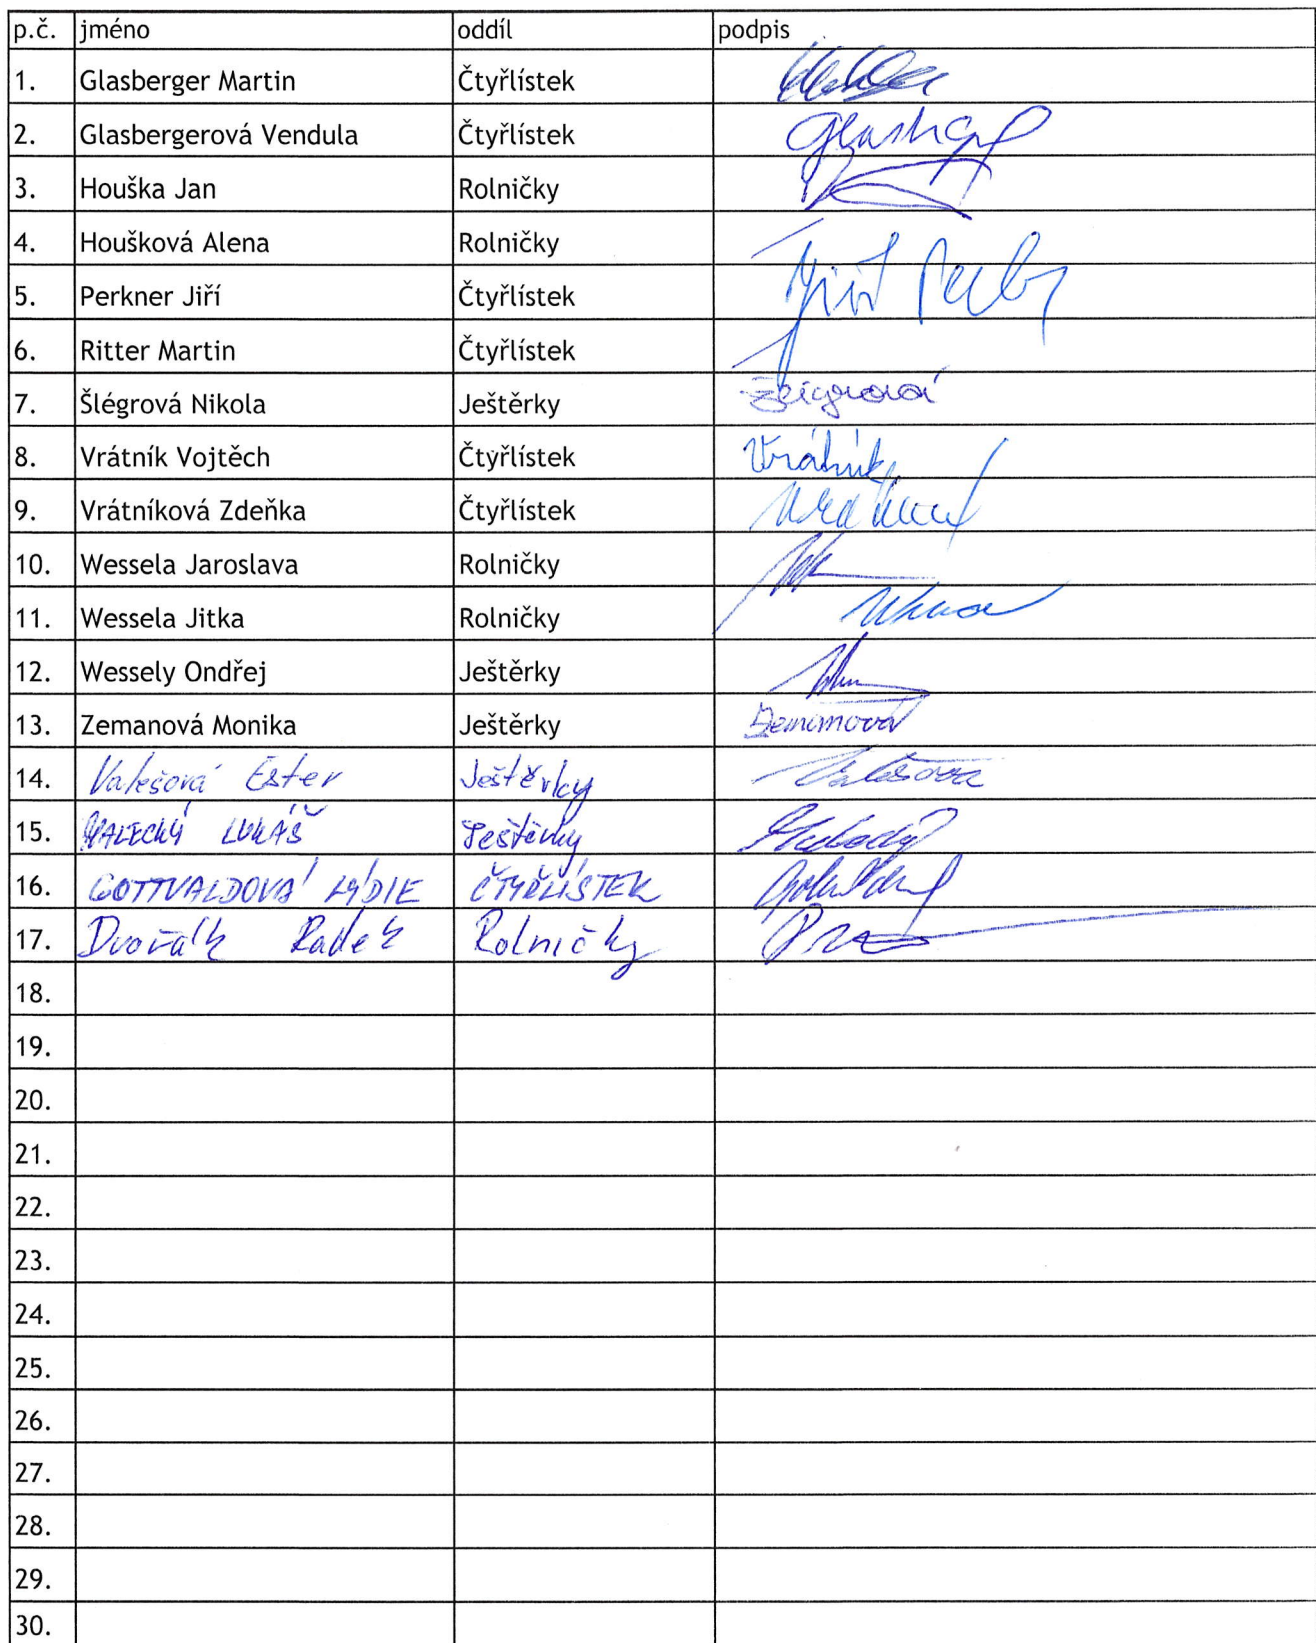 p.č. jméno oddíl podpis
1. Glasberger Martin Čtyřlístek
2. Glasbergerová Vendula Čtyřlístek
3. Houška Jan Rolničky
4. Houšková Alena Rolničky
5. Perkner Jiří Čtyřlístek
6. Ritter Martin Čtyřlístek
7. Šlégrová Nikola Ještěrky
8. Vrátník Vojtěch Čtyřlístek Vrátník
9. Vrátníková Zdeňka Čtyřlístek
10. Wessela Jaroslava Rolničky
11. Wessela Jitka Rolničky
12. Wessely Ondřej Ještěrky
13. Zemanová Monika Ještěrky Zemanová
14. Valešová Ester Ještěrky Valešová
15. LUKÁŠ Ještěrky
16. GOTTVALDOVÁ LÝDIE ČTYŘLÍSTEK
17. Dvořák Radek Rolničky
18.
19.
20.
21.
22.
23.
24.
25.
26.
27.
28.
29.
30.